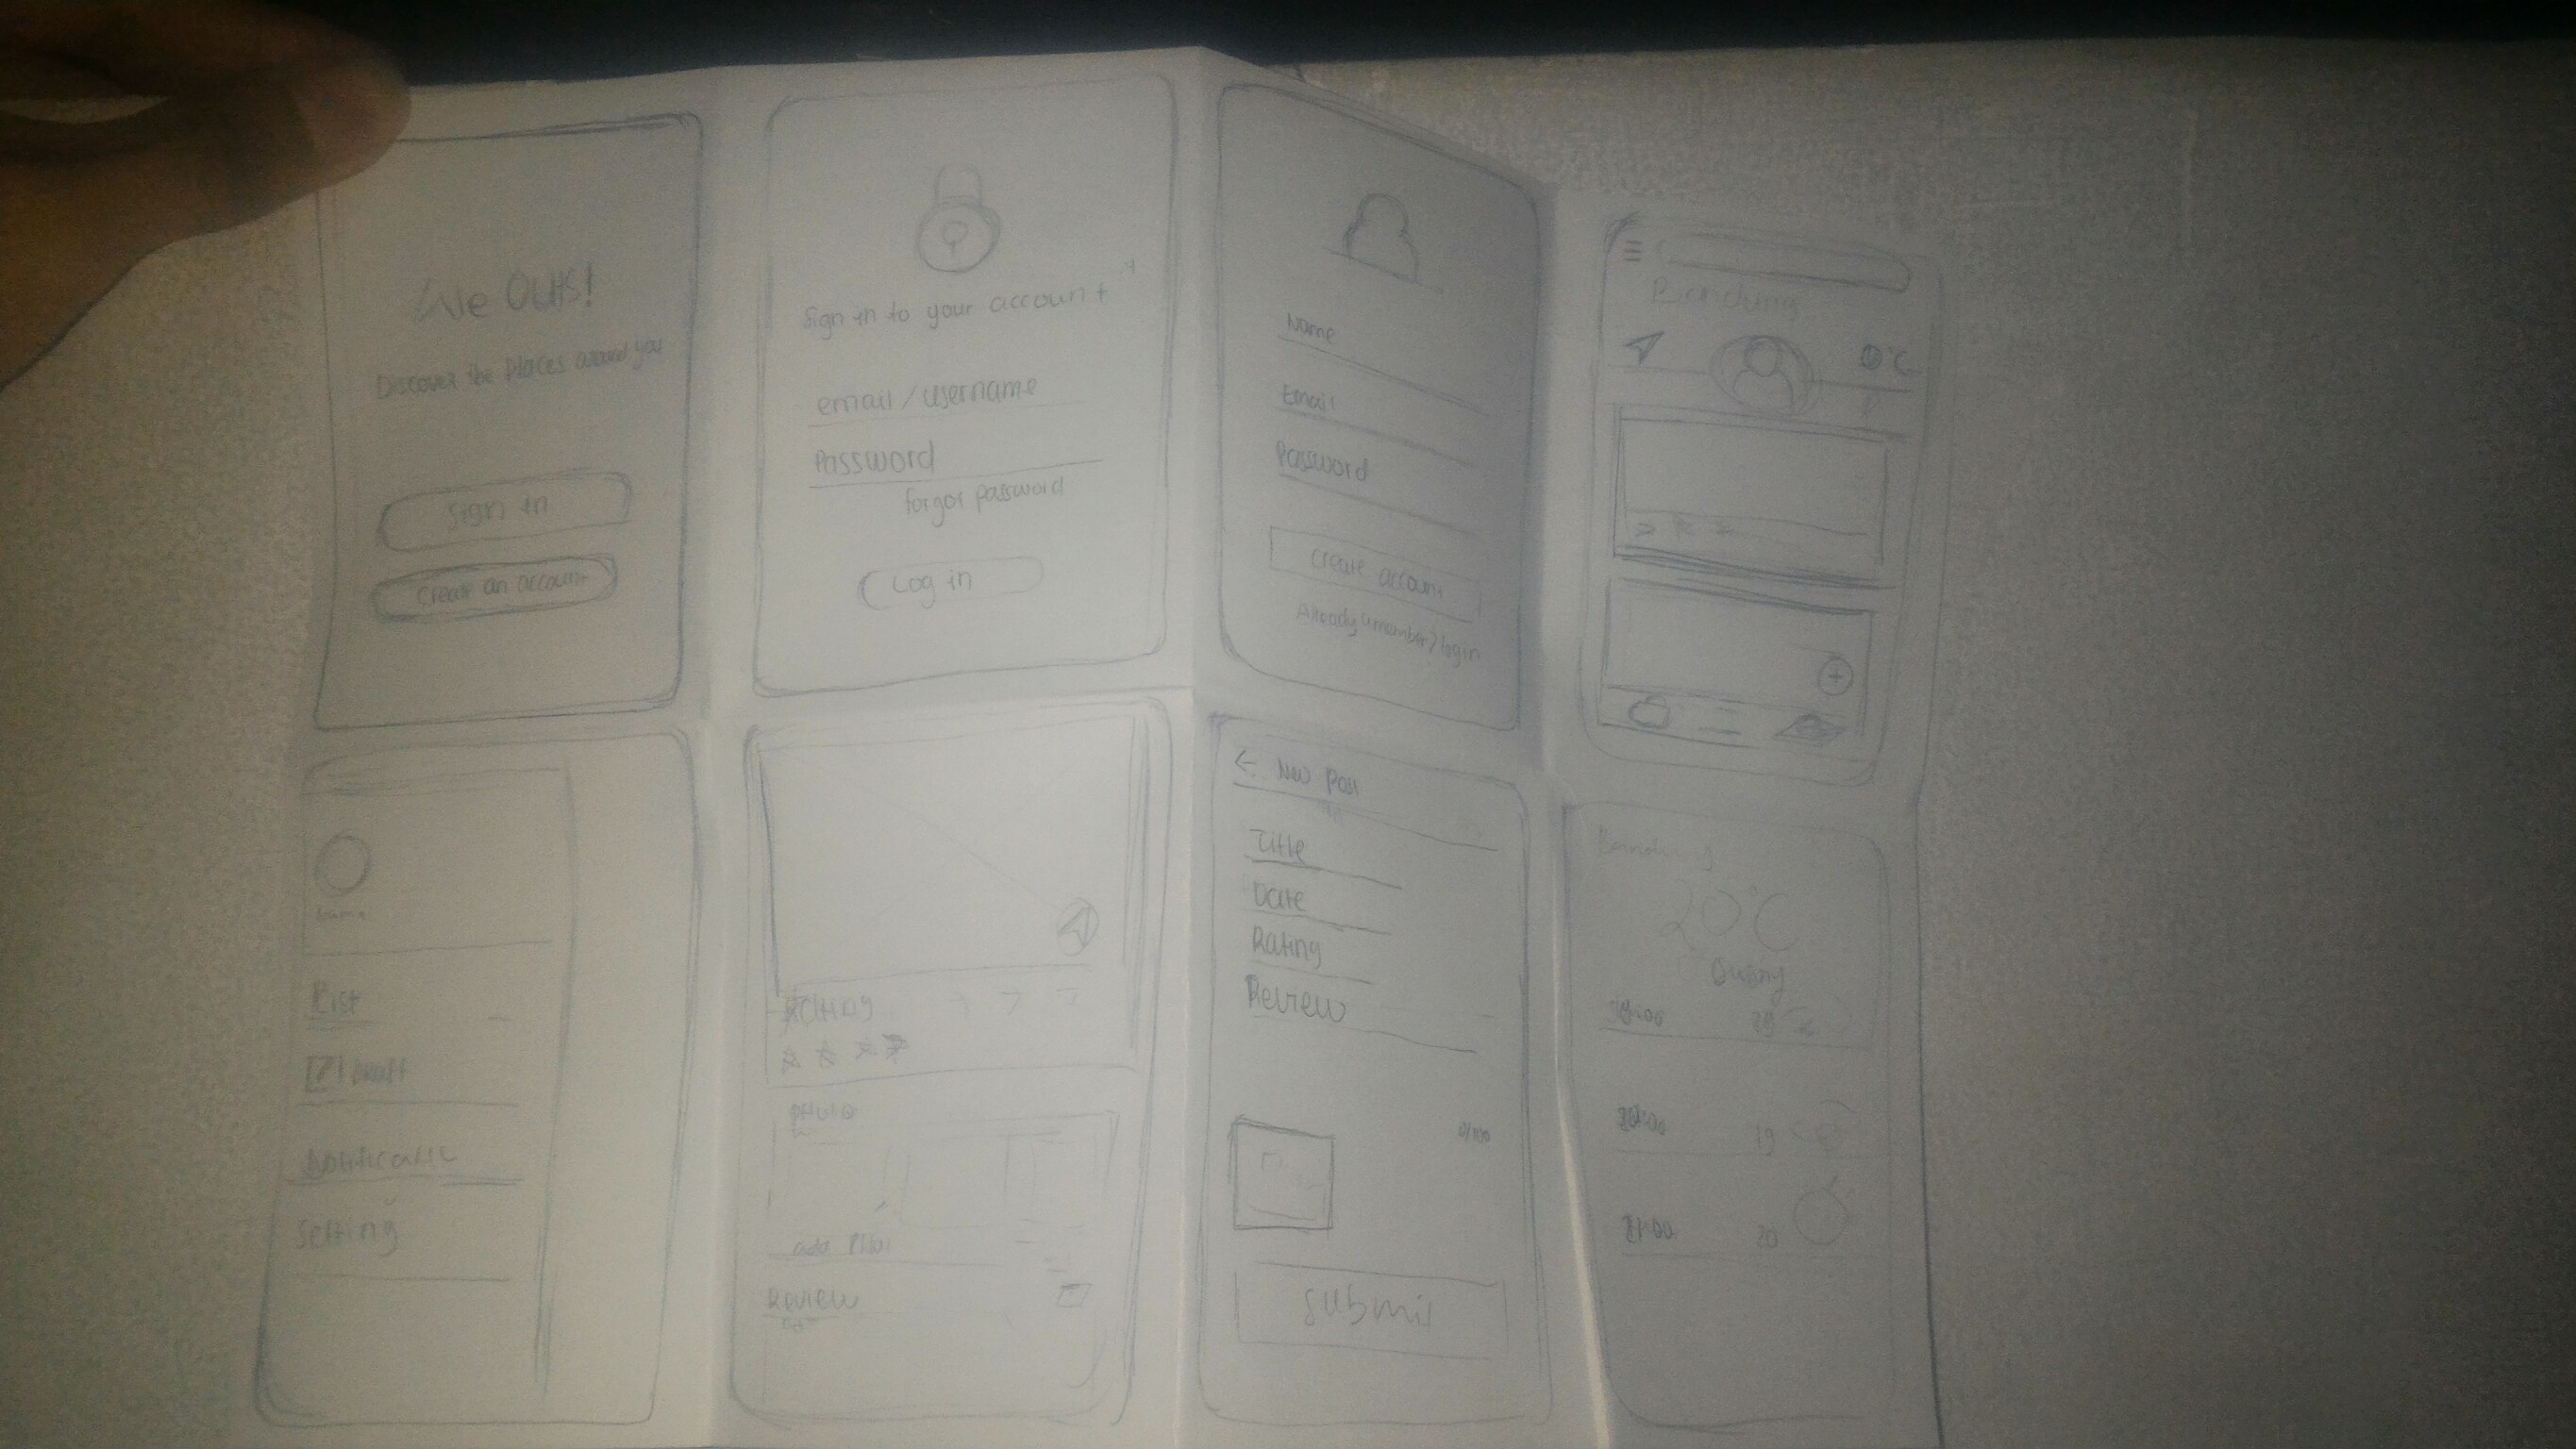 We Outs!
Discover the Places around you
Sign in
Create an account
Sign in to your account
email / username
Password
forgot password
Log in
Name
Email
Password
Create account
Already a member? login
Bandung
°C
name
List
Draft
Setting
Rating
Photo
add
Review
← New Post
Title
Date
Rating
Review
0/100
Submit
Bandung
20°C
19:00
20:00 19
21:00 20